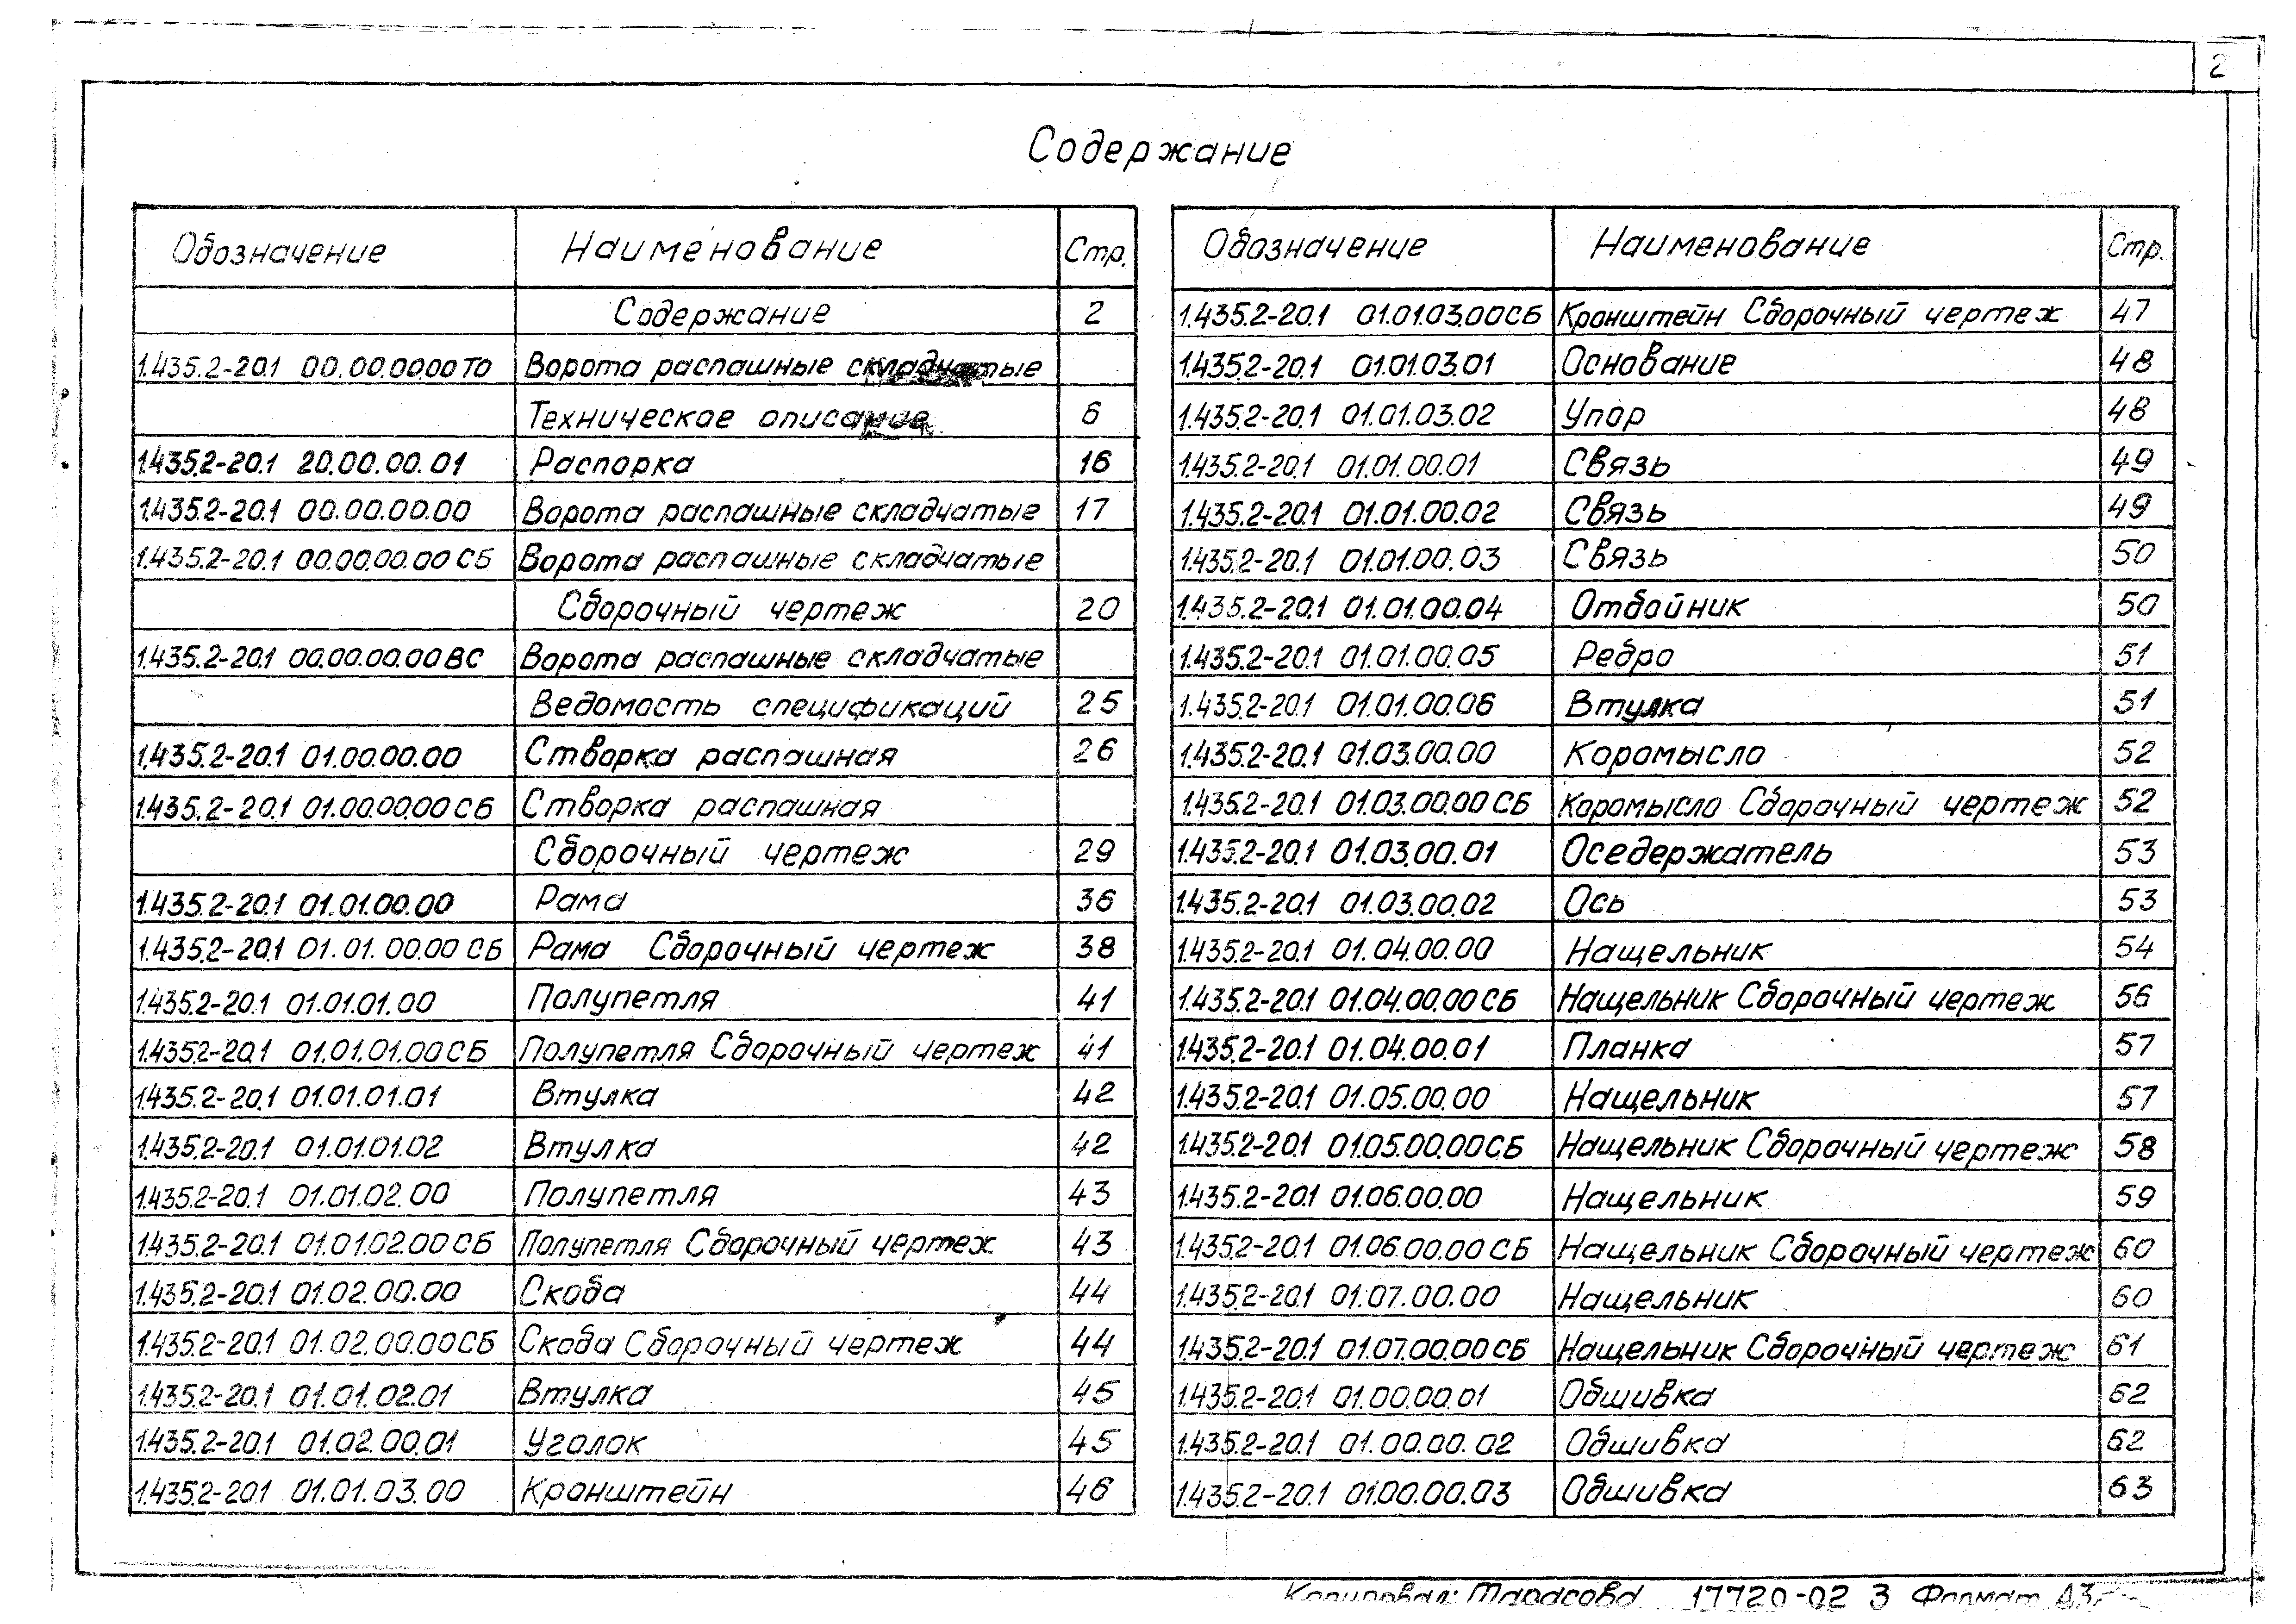 2
Содержание
Обозначение Наименование Стр.
Содержание 2
1.435.2-20.1 00.00.00.00 ТО Ворота распашные складчатые
Техническое описание 6
1.435.2-20.1 20.00.00.01 Распорка 16
1.435.2-20.1 00.00.00.00 Ворота распашные складчатые 17
1.435.2-20.1 00.00.00.00 СБ Ворота распашные складчатые
Сборочный чертеж 20
1.435.2-20.1 00.00.00.00 ВС Ворота распашные складчатые
Ведомость спецификаций 25
1.435.2-20.1 01.00.00.00 Створка распашная 26
1.435.2-20.1 01.00.00.00 СБ Створка распашная
Сборочный чертеж 29
1.435.2-20.1 01.01.00.00 Рама 36
1.435.2-20.1 01.01.00.00 СБ Рама Сборочный чертеж 38
1.435.2-20.1 01.01.01.00 Полупетля 41
1.435.2-20.1 01.01.01.00 СБ Полупетля Сборочный чертеж 41
1.435.2-20.1 01.01.01.01 Втулка 42
1.435.2-20.1 01.01.01.02 Втулка 42
1.435.2-20.1 01.01.02.00 Полупетля 43
1.435.2-20.1 01.01.02.00 СБ Полупетля Сборочный чертеж 43
1.435.2-20.1 01.02.00.00 Скоба 44
1.435.2-20.1 01.02.00.00 СБ Скоба Сборочный чертеж 44
1.435.2-20.1 01.01.02.01 Втулка 45
1.435.2-20.1 01.02.00.01 Уголок 45
1.435.2-20.1 01.01.03.00 Кронштейн 46
Обозначение Наименование Стр.
1.435.2-20.1 01.01.03.00 СБ Кронштейн Сборочный чертеж 47
1.435.2-20.1 01.01.03.01 Основание 48
1.435.2-20.1 01.01.03.02 Упор 48
1.435.2-20.1 01.01.00.01 Связь 49
1.435.2-20.1 01.01.00.02 Связь 49
1.435.2-20.1 01.01.00.03 Связь 50
1.435.2-20.1 01.01.00.04 Отбойник 50
1.435.2-20.1 01.01.00.05 Ребро 51
1.435.2-20.1 01.01.00.06 Втулка 51
1.435.2-20.1 01.03.00.00 Коромысло 52
1.435.2-20.1 01.03.00.00 СБ Коромысло Сборочный чертеж 52
1.435.2-20.1 01.03.00.01 Оседержатель 53
1.435.2-20.1 01.03.00.02 Ось 53
1.435.2-20.1 01.04.00.00 Нащельник 54
1.435.2-20.1 01.04.00.00 СБ Нащельник Сборочный чертеж 56
1.435.2-20.1 01.04.00.01 Планка 57
1.435.2-20.1 01.05.00.00 Нащельник 57
1.435.2-20.1 01.05.00.00 СБ Нащельник Сборочный чертеж 58
1.435.2-20.1 01.06.00.00 Нащельник 59
1.435.2-20.1 01.06.00.00 СБ Нащельник Сборочный чертеж 60
1.435.2-20.1 01.07.00.00 Нащельник 60
1.435.2-20.1 01.07.00.00 СБ Нащельник Сборочный чертеж 61
1.435.2-20.1 01.00.00.01 Обшивка 62
1.435.2-20.1 01.00.00.02 Обшивка 62
1.435.2-20.1 01.00.00.03 Обшивка 63
Копировал: Тарасова 17720-02 3 Формат А3